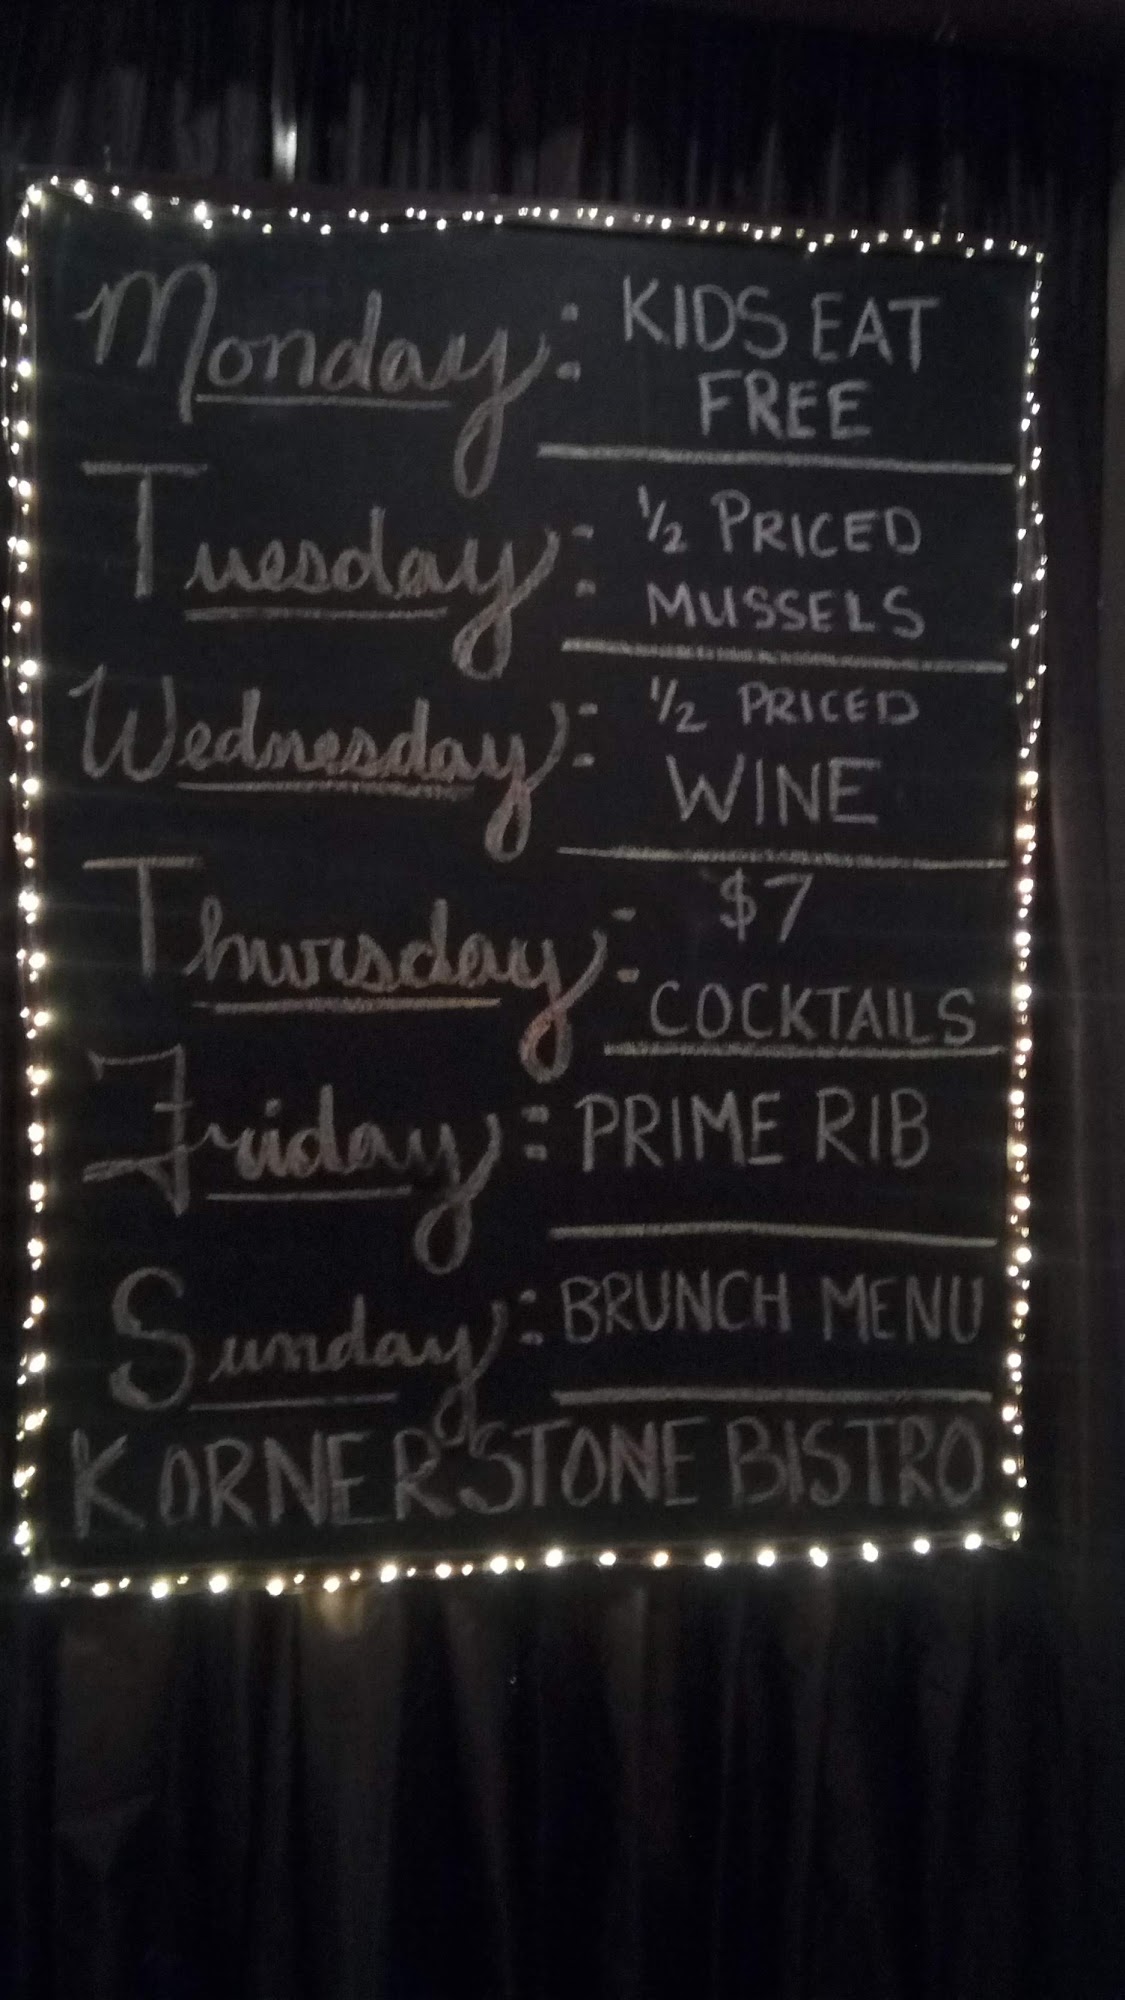 Monday: KIDS EAT
FREE
Tuesday: 1/2 PRICED
MUSSELS
Wednesday: 1/2 PRICED
WINE
Thursday: $7
COCKTAILS
Friday: PRIME RIB
Sunday: BRUNCH MENU
KORNERSTONE BISTRO